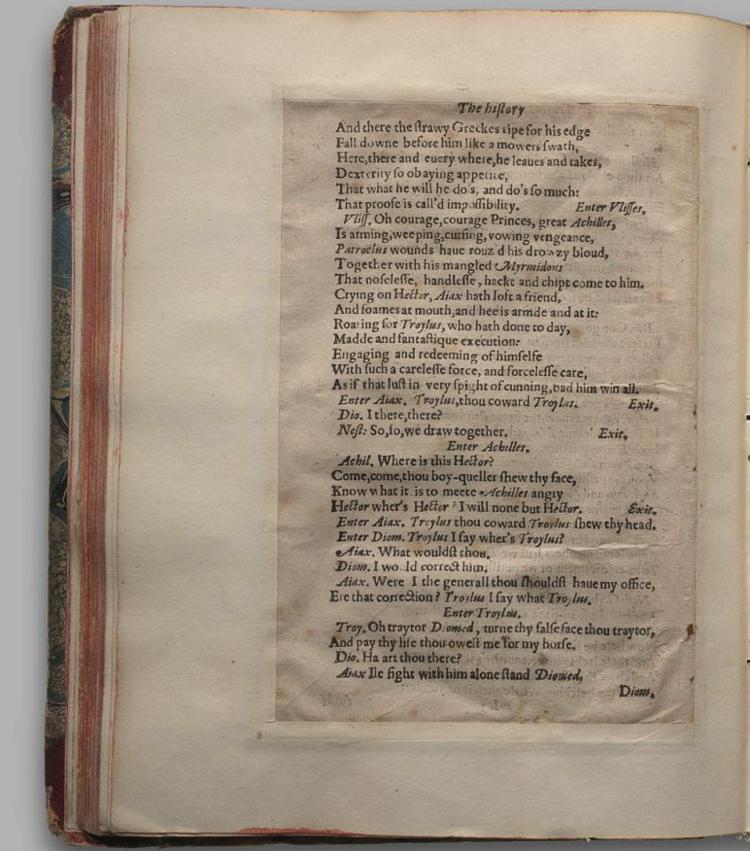 The hiſtory
And there the ſtrawy Greekes ripe for his edge
Fall downe before him like a mowers ſwath,
Here,there and euery where,he leaues and takes,
Dexterity ſo obaying appetite,
That what he will he do's, and do's ſo much:
That proofe is call'd impoſſibility. Enter Vliſſes.
Vliſſ. Oh courage,courage Princes, great Achilles,
Is arming,weeping,curſing, vowing vengeance,
Patroclus wounds haue rouz'd his drowzy bloud,
Together with his mangled Myrmidons
That noſeleſſe, handleſſe, hackt and chipt come to him.
Crying on Hector, Aiax hath loſt a friend,
And foames at mouth,and hee is armde and at it:
Roaring for Troylus, who hath done to day,
Madde and fantaſtique execution:
Engaging and redeeming of himſelfe
With ſuch a careleſſe force, and forceleſſe care,
As if that luſt in very ſpight of cunning,bad him win all.
Enter Aiax. Troylus,thou coward Troylus. Exit.
Dio. I there,there?
Neſt: So,ſo,we draw together. Exit.
Enter Achilles.
Achil. Where is this Hector?
Come,come,thou boy-queller ſhew thy face,
Know what it is to meete Achilles angry
Hector wher's Hector? I will none but Hector. Exit.
Enter Aiax. Troylus thou coward Troylus ſhew thy head.
Enter Diom. Troylus I ſay wher's Troylus?
Aiax. What wouldſt thou.
Diom. I wo ld correct him.
Aiax. Were I the generall thou ſhouldſt haue my office,
Ere that correction? Troylus I ſay what Troylus.
Enter Troylus.
Troy. Oh traytor Diomed, turne thy falſe face thou traytor,
And pay thy life thou oweſt me for my horſe.
Dio. Ha art thou there?
Aiax Ile fight with him alone ſtand Diomed,
Diom.